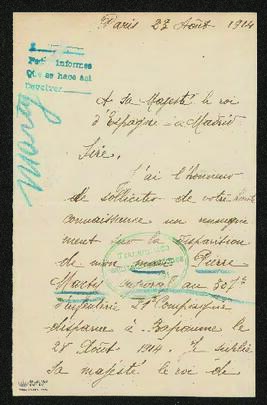 Paris 27 Août 1914
Pedir informes
Que se hace asi
Devolver
Marty
A Sa Majesté le roi
d'Espagne à Madrid
Sire,
J'ai l'honneur
de solliciter de votre haute
connaissance un renseigne
ment sur la disparition
de mon Pierre
Marty au 307e
d'infanterie 21e Compagnie
disparu à Bapaume le
28 Août 1914. Je supplie
Sa majesté le roi de